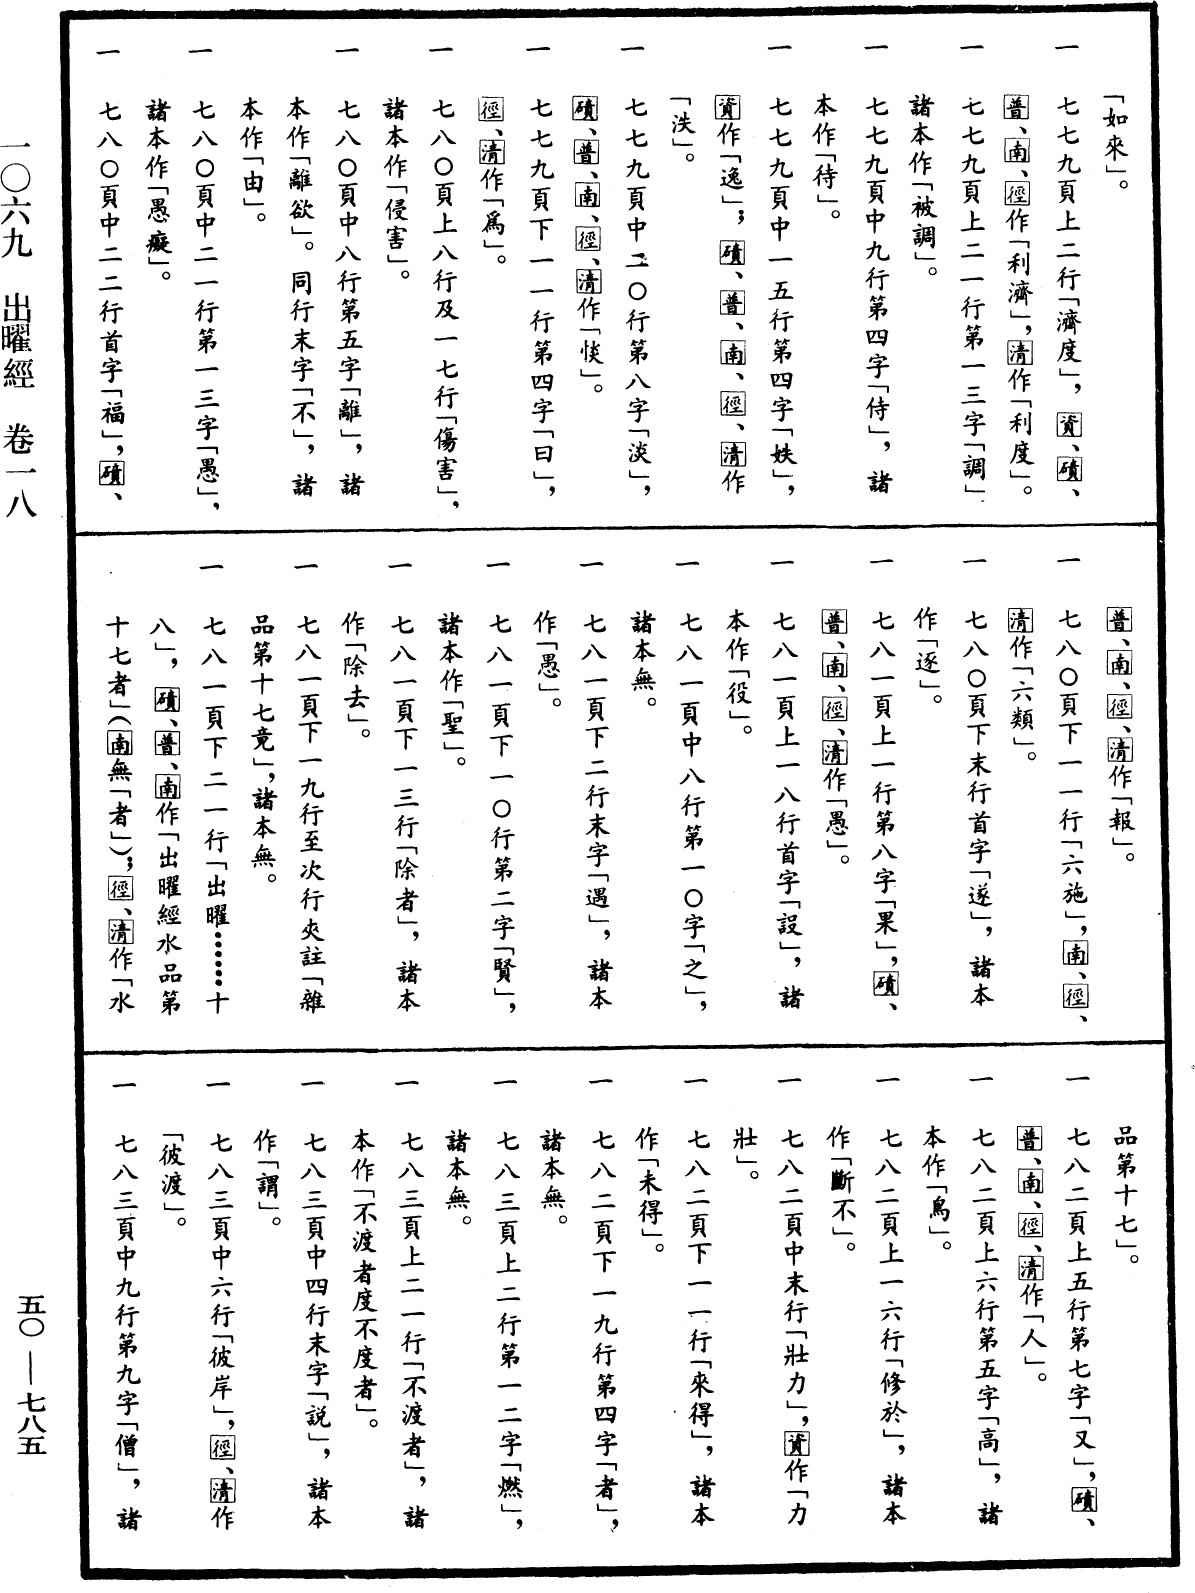 「如來」。
一　七七九頁上二行「濟度」，資、磧、
普、南、徑作「利濟」，清作「利度」。
一　七七九頁上二一行第一三字「調」，
諸本作「被調」。
一　七七九頁中九行第四字「侍」，諸
本作「待」。
一　七七九頁中一五行第四字「妷」，
資作「逸」；磧、普、南、徑、清作
「泆」。
一　七七九頁中二〇行第八字「淡」，
磧、普、南、徑、清作「惔」。
一　七七九頁下一一行第四字「曰」，
徑、清作「爲」。
一　七八〇頁上八行及一七行「傷害」，
諸本作「侵害」。
一　七八〇頁中八行第五字「離」，諸
本作「離欲」。同行末字「不」，諸
本作「由」。
一　七八〇頁中二一行第一三字「愚」，
諸本作「愚癡」。
一　七八〇頁中二二行首字「福」，磧、
普、南、徑、清作「報」。
一　七八〇頁下一一行「六施」，南、徑、
清作「六類」。
一　七八〇頁下末行首字「遂」，諸本
作「逐」。
一　七八一頁上一行第八字「果」，磧、
普、南、徑、清作「愚」。
一　七八一頁上一八行首字「設」，諸
本作「役」。
一　七八一頁中八行第一〇字「之」，
諸本無。
一　七八一頁下二行末字「遇」，諸本
作「愚」。
一　七八一頁下一〇行第二字「賢」，
諸本作「聖」。
一　七八一頁下一三行「除者」，諸本
作「除去」。
一　七八一頁下一九行至次行夾註「雜
品第十七竟」，諸本無。
一　七八一頁下二一行「出曜……十
八」，磧、普、南作「出曜經水品第
十七者」（南無「者」）；徑、清作「水
品第十七」。
一　七八二頁上五行第七字「又」，磧、
普、南、徑、清作「人」。
一　七八二頁上六行第五字「高」，諸
本作「鳥」。
一　七八二頁上一六行「修於」，諸本
作「斷不」。
一　七八二頁中末行「壯力」，資作「力
壯」。
一　七八二頁下一一行「來得」，諸本
作「未得」。
一　七八二頁下一九行第四字「者」，
諸本無。
一　七八三頁上二行第一二字「燃」，
諸本無。
一　七八三頁上二一行「不渡者」，諸
本作「不渡者度不度者」。
一　七八三頁中四行末字「説」，諸本
作「謂」。
一　七八三頁中六行「彼岸」，徑、清作
「彼渡」。
一　七八三頁中九行第九字「僧」，諸
一〇六九　出曜經　卷一八
五〇—七八五